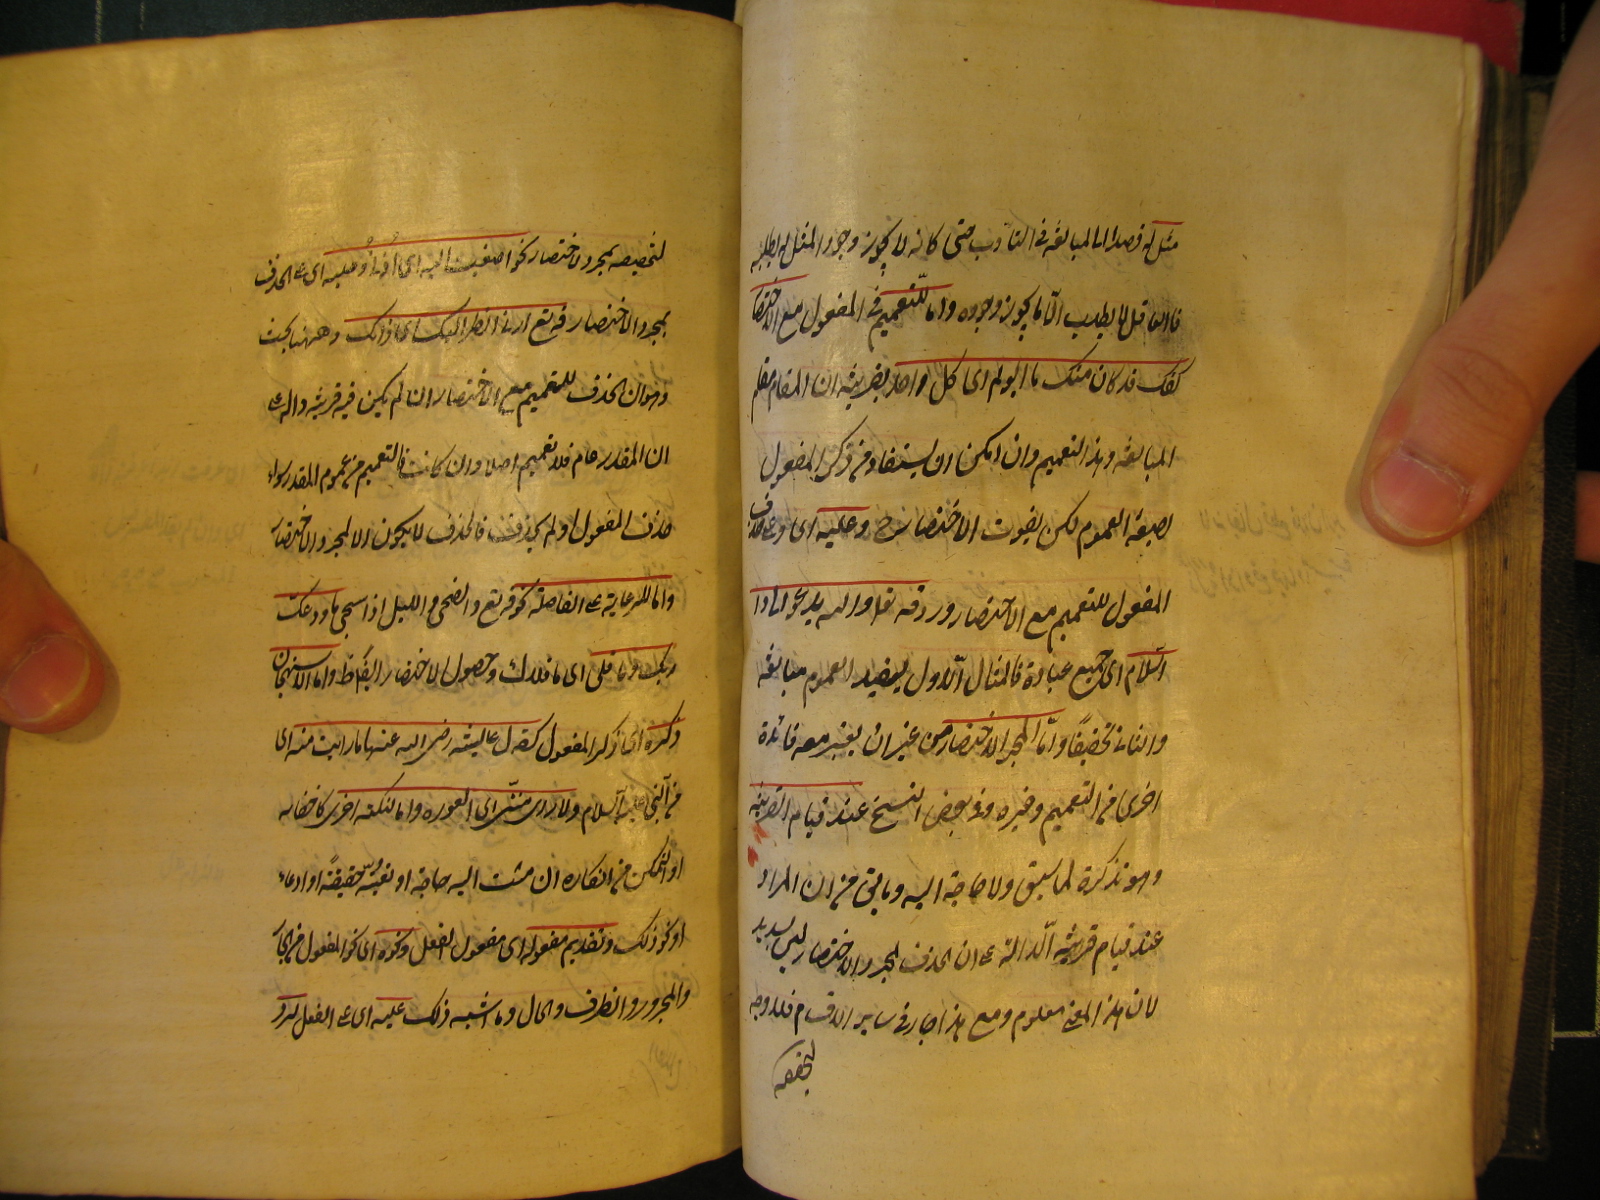 مثل له قصدا الى المبالغة فى التأدب حتى كانه لا يجوز وجود المثل له ليطلبه
فان العاقل لا يطلب الّا ما يجوز وجوده واما للتعميم فى المفعول مع الاختصار
كقولك قد كان منك ما يؤلم اى كل واحد بقرينة ان المقام مقام
المبالغة وهذا التعميم وان امكن ان يستفاد من ذكر المفعول
بصيغة العموم لكن يفوت الاختصار ح وعليه اى وعلى حذف
المفعول للتعميم مع الاختصار ورد قوله تعالى والله يدعو الى دار
السّلام اى جميع عباده فالمثال الّاول يفيد العموم مبالغة
والثانى تحقيقًا وامّا لمجرد الاختصار من غير ان يعتبر معه فائدة
اخرى من التعميم وغيره وفى بعض النسخ عند قيام القرينة
وهو تذكرة لما سبق ولا حاجة اليه وما يقال من ان المراد
عند قيام قرينة الّدالة على ان الحذف لمجرد الاختصار ليس بسديد
لان هذا المعنى معلوم ومع هذا جار فى ساير الاقسام فلا وجه
لتخصيصه
لتخصيصه بمجرد الاختصار نحو اصغيت اليه اى اُذنى وعليه اى على الحذف
بمجرد الاختصار قوله تع ارنى انظر اليك اى ذاتك وههنا بحث
وهو ان الحذف للتعميم مع الاختصار ان لم يكن فيه قرينة دالة على
ان المقدر عام فلا تعميم اصلا وان كانت فالتعميم من عموم المقدر سواء
حذف المفعول او لم يحذف فالحذف لا يكون الا لمجرد الاختصار
واما للرعاية على الفاصلة نحو قوله تع والضحى والليل اذا سجى ما ودعك
ربك وما قلى اى ما قلاك وحصول الاختصار ايضا ظ واما لاستهجان
ذكره اى ذكر المفعول كقول عايشه رضى الله عنها ما رايت منه اى
من النبى عليه السلام ولا راى منّى اى العورة واما لنكتة اخرى كاخفائه
او التمكن من انكاره ان مست اليه حاجة او تعيّنه حقيقةً او ادعاء
او نحو ذلك وتقديم مفعوله اى مفعول الفعل ونحوه اى نحو المفعول من الجار
والمجرور والظرف والحال وما اشبه ذلك عليه اى على الفعل لرد